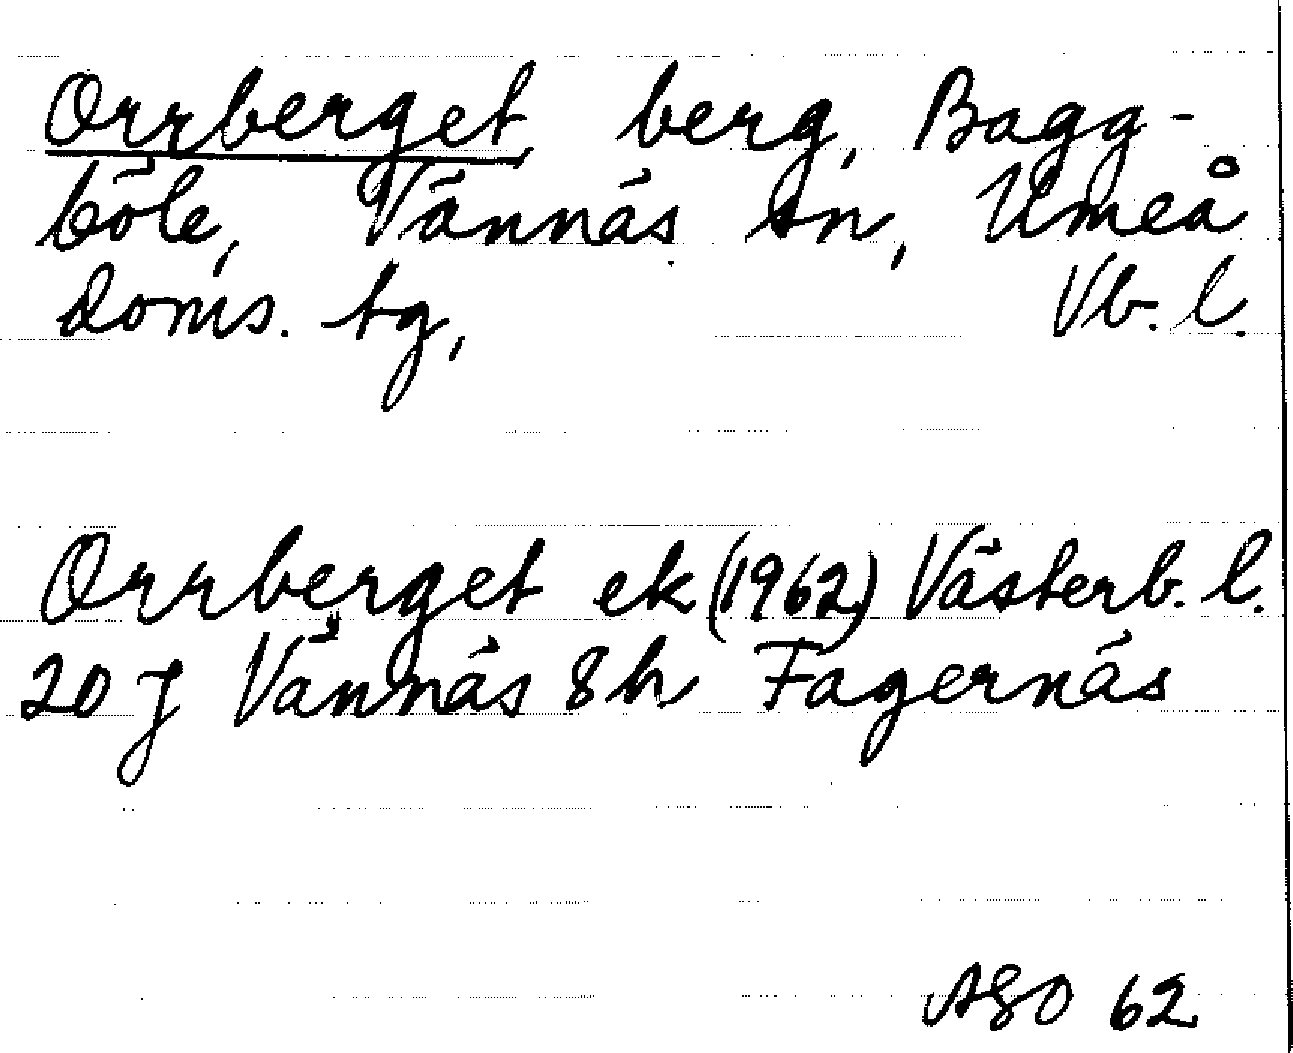 Orrberget, berg, Bagg-
böle, Vännäs sn, Umeå
doms. tg, Vb. l.
Orrberget ek (1962) Västerb. l.
20 J Vännäs 8h Fagernäs
ASO 62